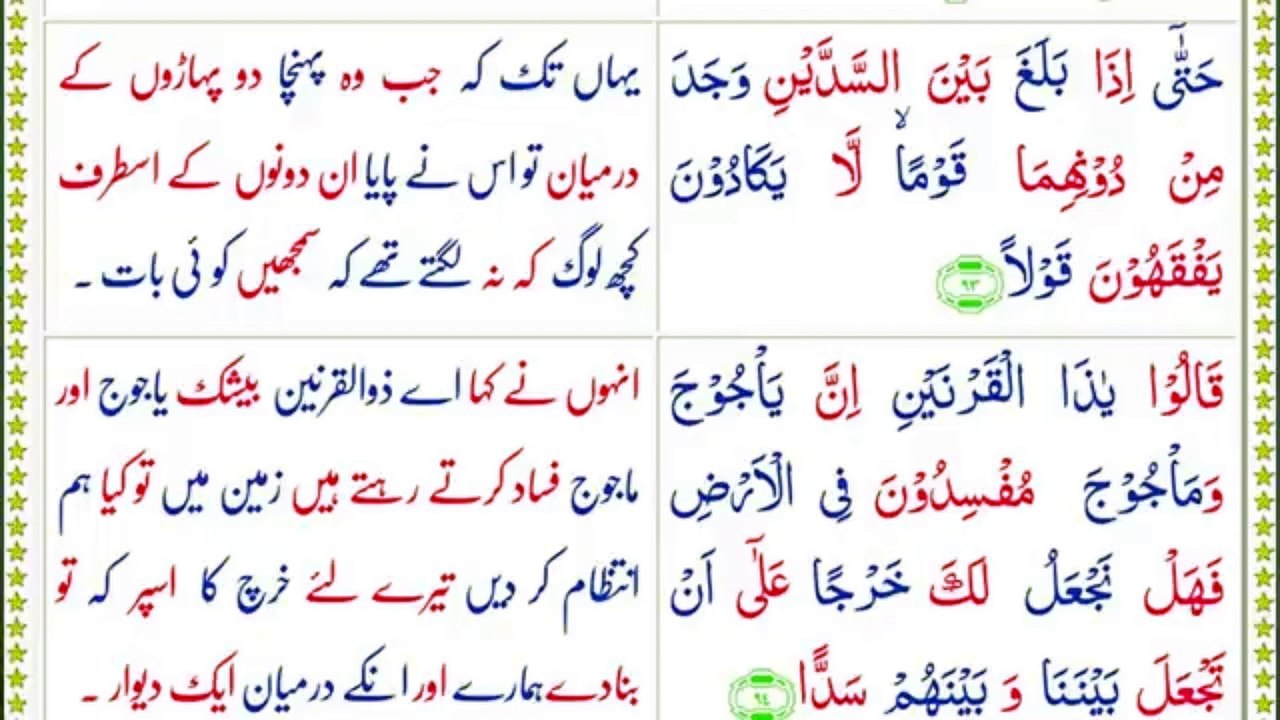 حَتّٰٓى اِذَا بَلَغَ بَيْنَ السَّدَّيْنِ وَجَدَ
مِنْ دُوْنِهِمَا قَوْمًا ۙ لَّا يَكَادُوْنَ
يَفْقَهُوْنَ قَوْلًا ٩٣
یہاں تک کہ جب وہ پہنچا دو پہاڑوں کے
درمیان تو اس نے پایا ان دونوں کے اسطرف
کچھ لوگ کہ نہ لگتے تھے کہ سمجھیں کوئی بات ۔
قَالُوْا يٰذَا الْقَرْنَيْنِ اِنَّ يَاْجُوْجَ
وَمَاْجُوْجَ مُفْسِدُوْنَ فِى الْاَرْضِ
فَهَلْ نَجْعَلُ لَكَ خَرْجًا عَلٰٓى اَنْ
تَجْعَلَ بَيْنَنَا وَ بَيْنَهُمْ سَدًّا ٩٤
انہوں نے کہا اے ذوالقرنین بیشک یاجوج اور
ماجوج فساد کرتے رہتے ہیں زمین میں تو کیا ہم
انتظام کر دیں تیرے لئے خرچ کا اسپر کہ تو
بنادے ہمارے اور انکے درمیان ایک دیوار ۔